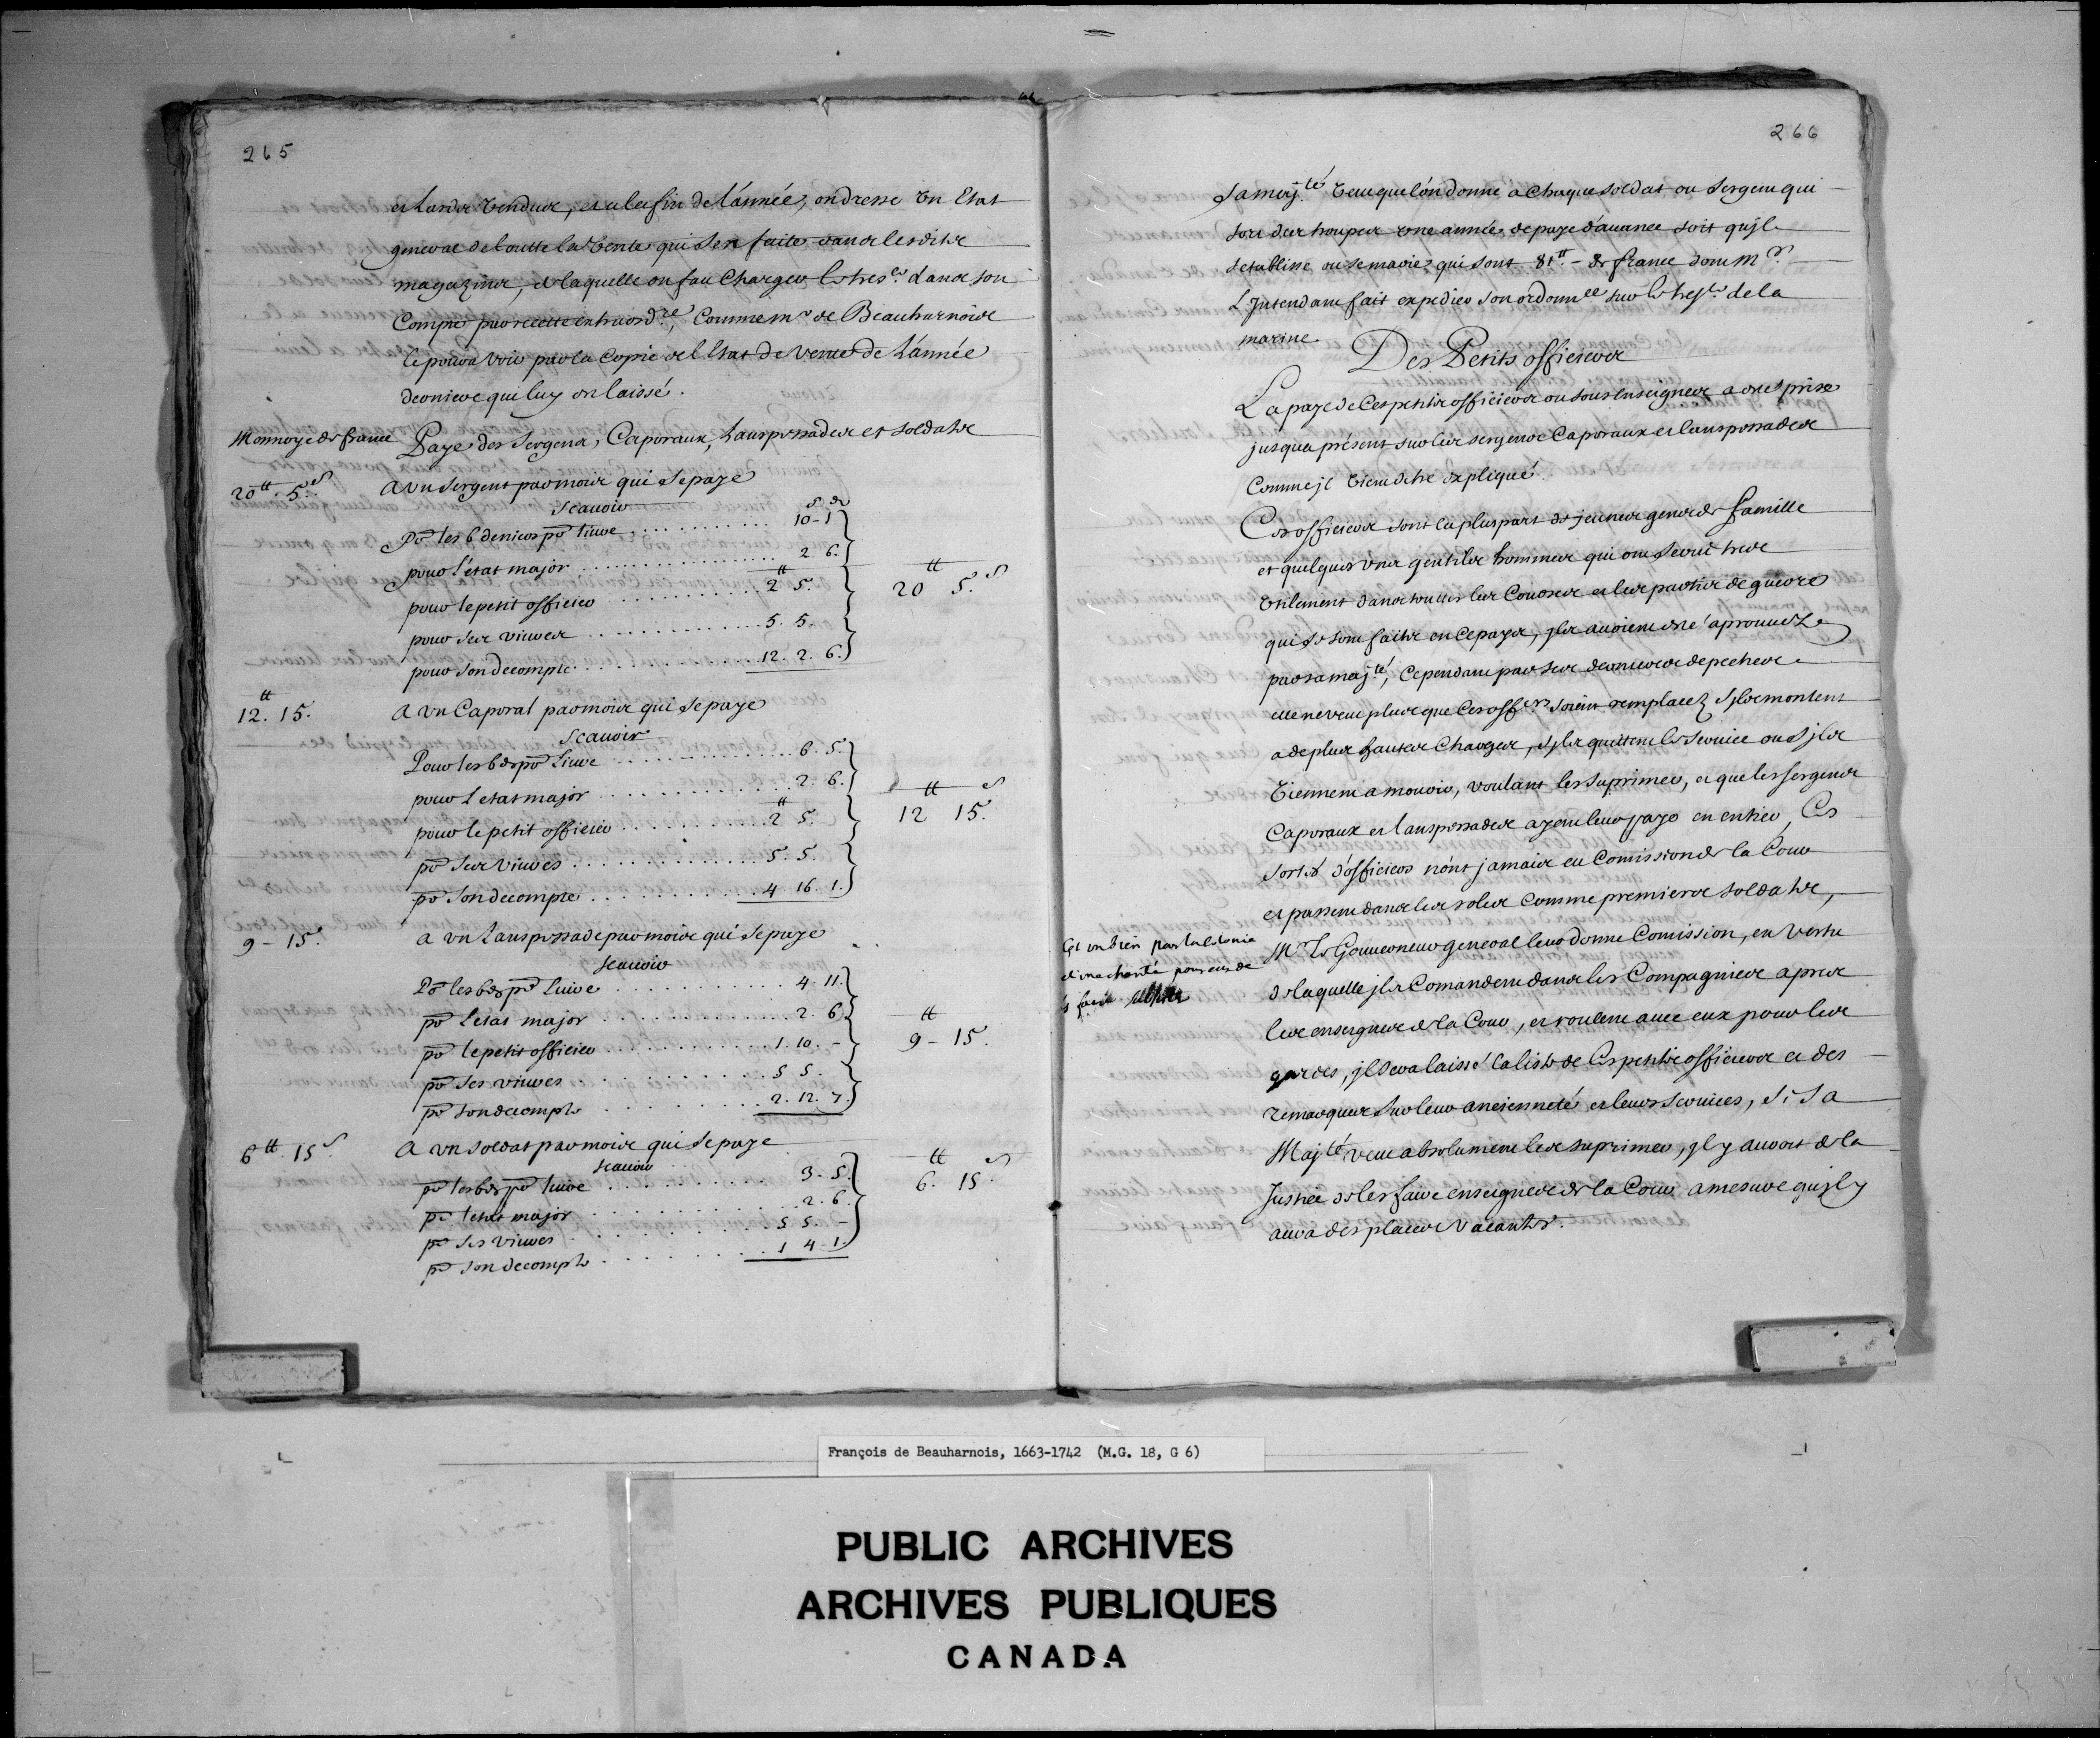 265
et hardes vendues, et a la fin de l'année, on dresse un Etat
general de toutte la vente qui s'est faite dans lesdits
magazins, de laquelle on fait charger le tres.er dans son
Compte par recette extraord.re, Comme m.r de Beauharnois
le poura voir par la Copie de l'Etat de vente de l'année
derniere qui luy est laissé.
Monnoye de france
Paye des Sergens, Caporaux, Lanspessades et soldats
20tt. 5s
A un sergent par mois qui se paye
Scauoir
s d
Po les 6 deniers po liure . . . 10-1
pour l'etat major . . . 2. 6.
pour le petit officier . . . 2tt 5.
pour ses viures . . . 5. 5.
pour son decompte . . . 12. 2. 6.
20tt 5.s
12tt. 15.
A un Caporal par mois qui se paye
Scauoir
Pour les 6d po Liure . . . 6. 5.
pour L'etat major . . . 2. 6.
pour le petit officier . . . 2tt 5.
po ses viures . . . 5. 5.
po son decompte . . . 4. 16. 1.
12tt 15.s
9 - 15.s
a un Lanspessade par mois qui se paye
scauoir
Po les 6d po Liure . . . 4. 11.
po L'etat major . . . 2. 6.
po le petit officier . . . 1. 10. -
po ses viures . . . 5 5.
po son decompte . . . 2. 12. 7.
9tt - 15.
6tt. 15s
A un soldat par mois qui se paye
scauoir
po les 6d po liure . . . 3 - 5.
po l'etat major . . . 2. 6.
po ses viures . . . 5 5. -
po son decompte . . . 1 4 - 1.
6.tt 15.s
266
Sa maj.té veut que l'on donne a chaque soldat ou sergent qui
sort des troupes une année de paye d'auance soit qu'jl
s'etablisse ou se marie, qui sont 81tt - de france dont M.r
L'Intendant fait expedier son ordonn.ce sur le tres.er de la
marine.
Des Petits officiers
La paye de Ces petits officiers ou sous enseignes a été prise
jusqu'a présent sur les sergens Caporaux et lanspessades
Comme jl vient d'être expliqué.
Ces officiers sont la pluspart de jeunes gens de famille
et quelques uns gentils hommes qui ont serui tres
utilement dans touttes les Courses et les partis de guerre
qui se sont faits en ce pays, jls auoient été aprouuez
par sa maj.té, Cependant par ses dernieres depeches
elle ne veut plus que Ces off.ers soient remplacez s'jls montent
a de plus hautes charges, s'jls quittent le seruice ou s'jls
viennent a mourir, voulant les suprimer, et que les sergens
Caporaux et lanspessades ayent leur paye en entier, Ces
sortes d'officiers n'ont jamais eu Comission de la Cour
et passent dans les roles Comme premiers soldats,
M.r le Gouuerneur general leur donne Comission, en vertu
de laquelle jls Comandent dans les Compagnies apres
les enseignes de la Cour, et roulent auec eux pour les
gardes, jl sera laissé la liste de Ces petits officiers et des
remarques sur leur ancienneté et leurs seruices, si Sa
Maj.té veut absolument les suprimer, jl y auroit de la
Justice de les faire enseignes de la Cour a mesure qu'jl y
aura des places vacantes.
Cet un bien par la Colonie
et une charité pour eux de
François de Beauharnois, 1663-1742 (M.G. 18, G 6)
PUBLIC ARCHIVES
ARCHIVES PUBLIQUES
CANADA